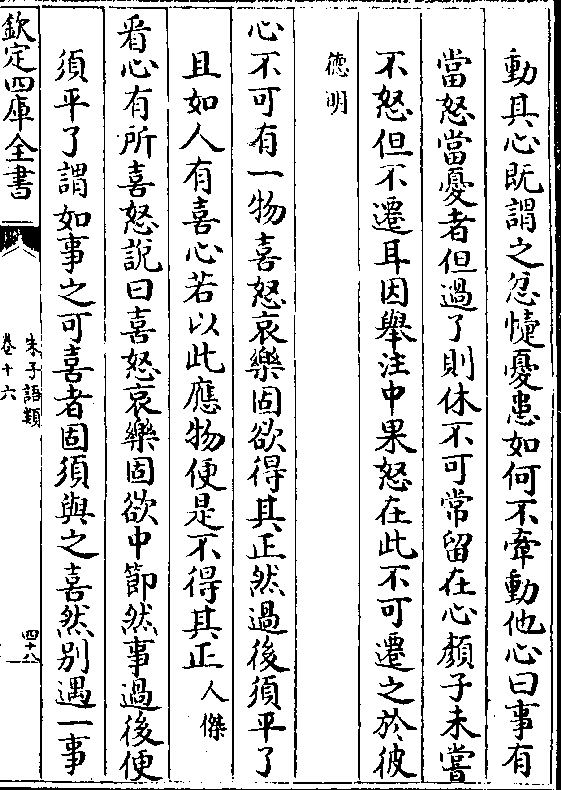 動其心既謂之忿懥憂患如何不牽動他心曰事有
當怒當憂者但過了則休不可常留在心顏子未嘗
不怒但不遷耳因舉注中果怒在此不可遷之於彼
德明
心不可有一物喜怒哀樂固欲得其正然過後須平了
且如人有喜心若以此應物便是不得其正人傑
看心有所喜怒說曰喜怒哀樂固欲中節然事過後便
須平了謂如事之可喜者固須與之喜然別遇一事
欽定四庫全書
朱子語類
卷十六
四十八